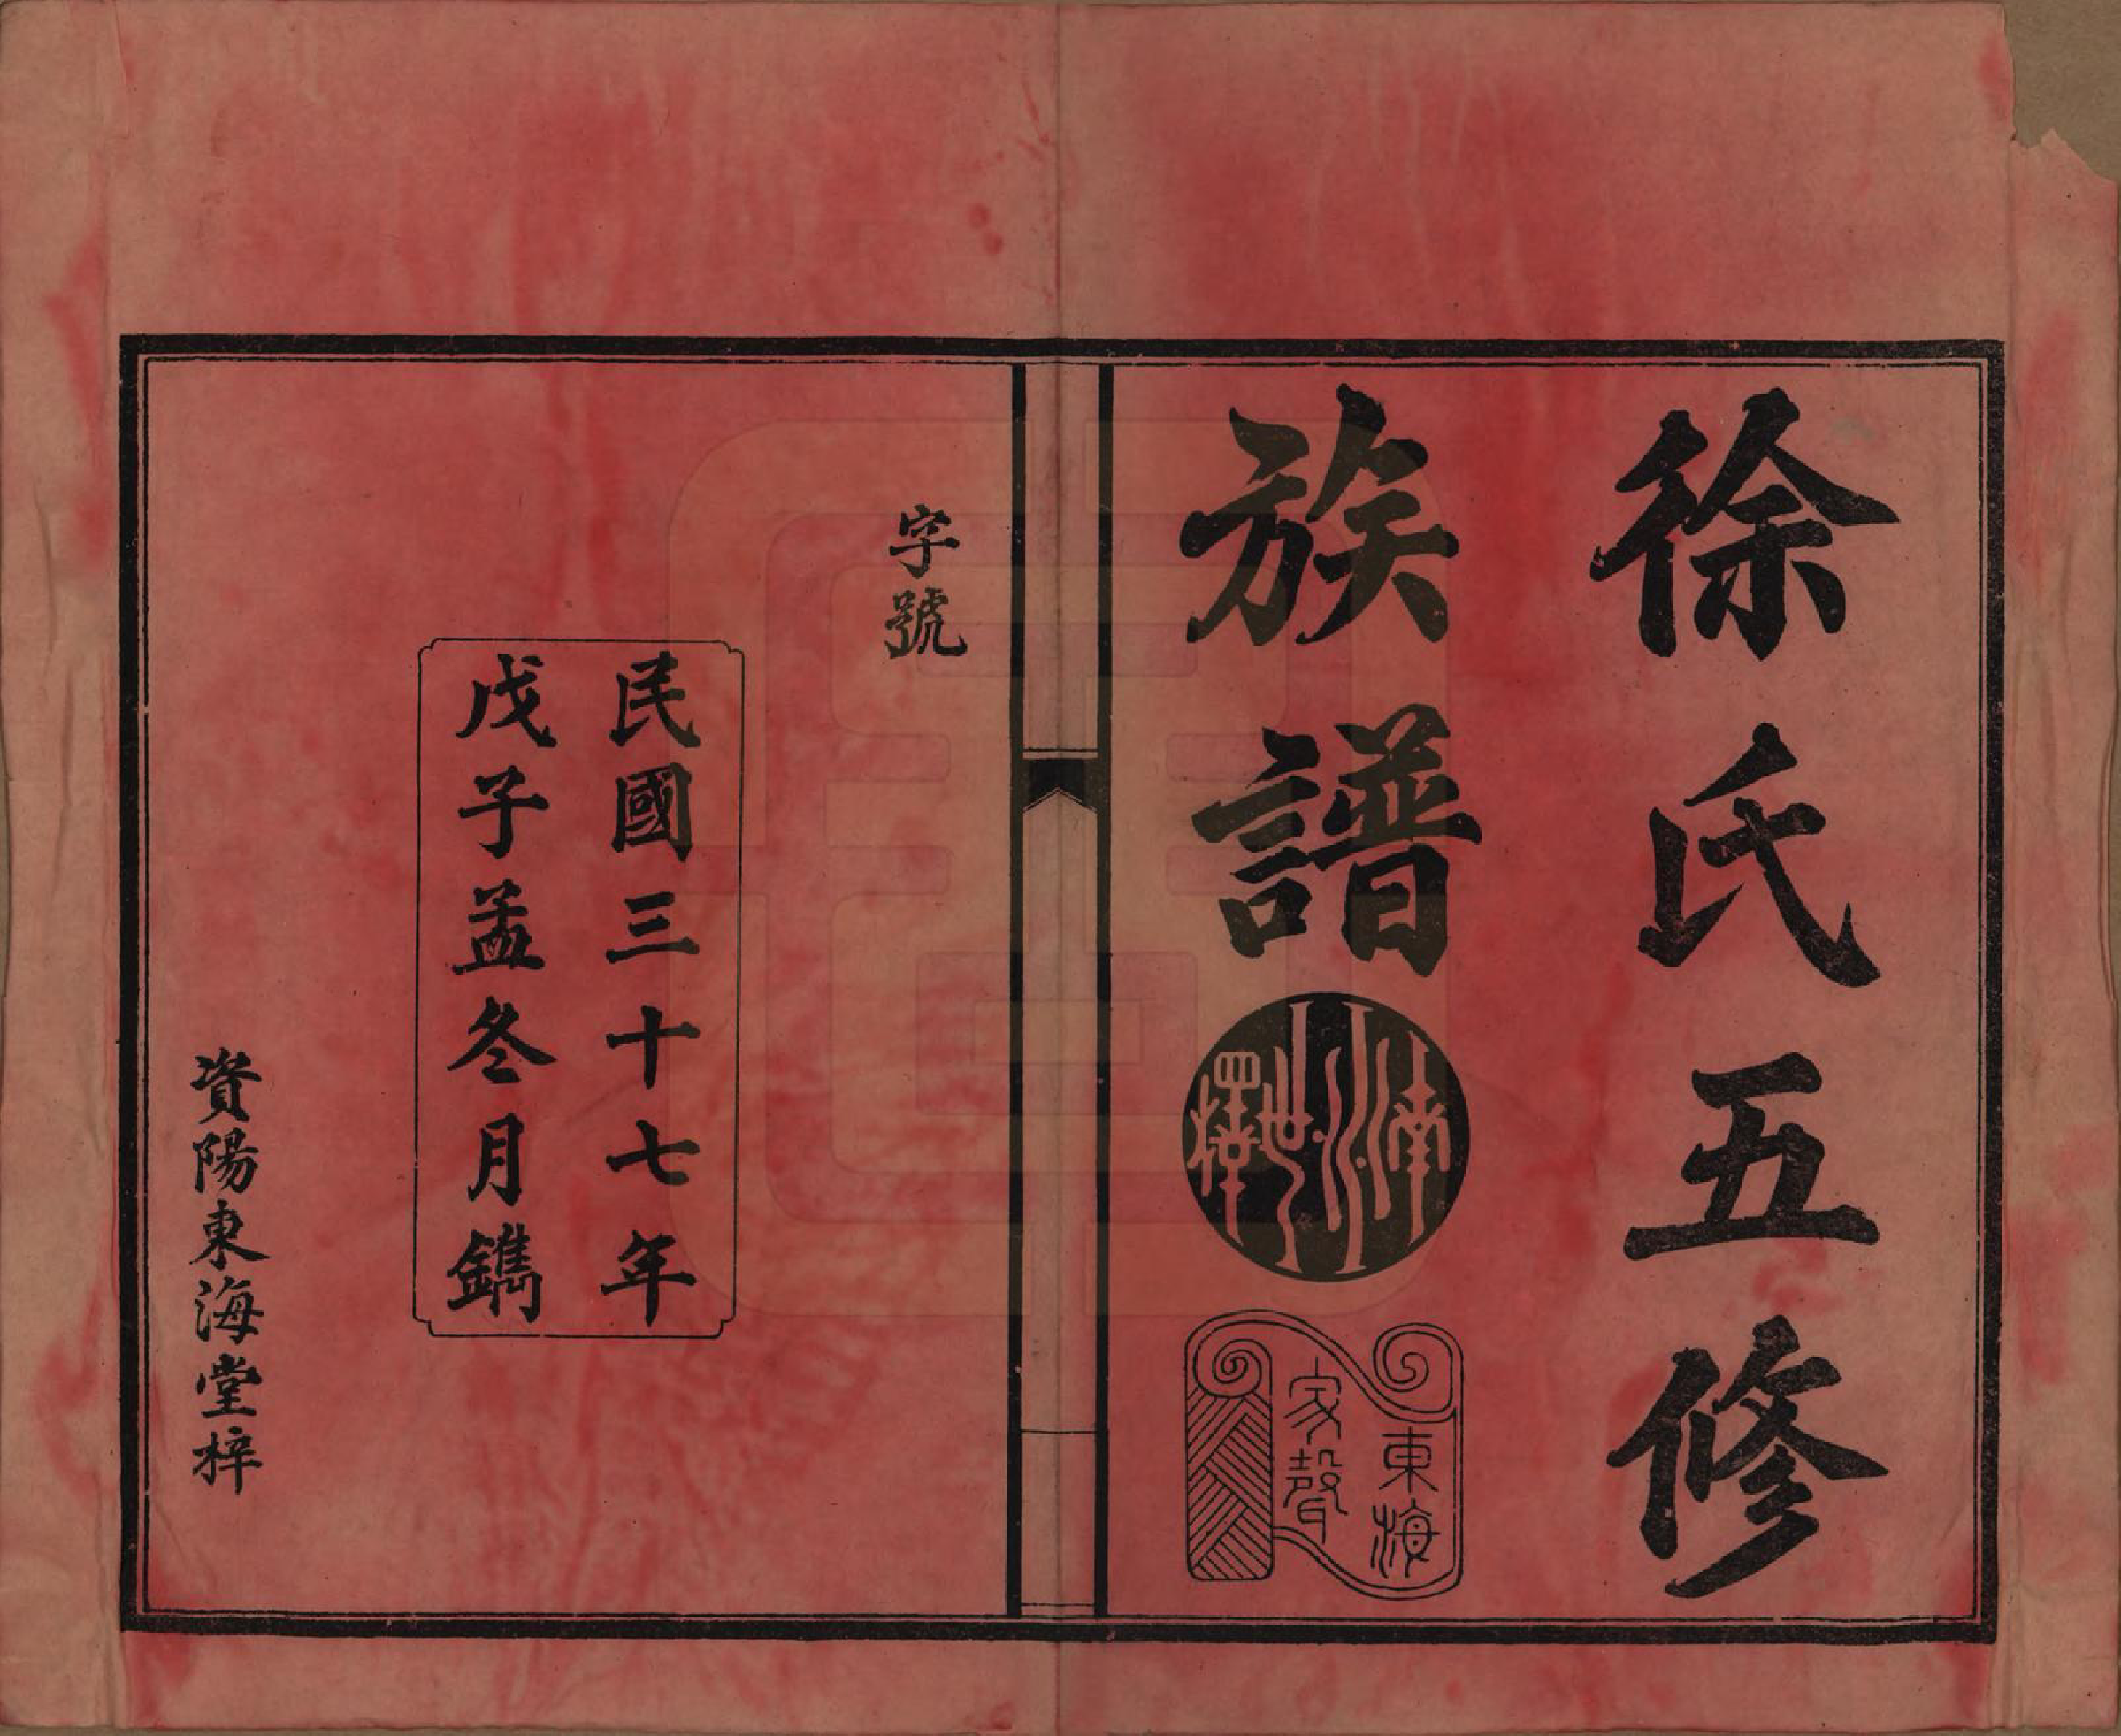 徐氏五修
族譜
南州世澤
東海
家聲
字號
民國三十七年
戊子孟冬月鐫
資陽東海堂梓